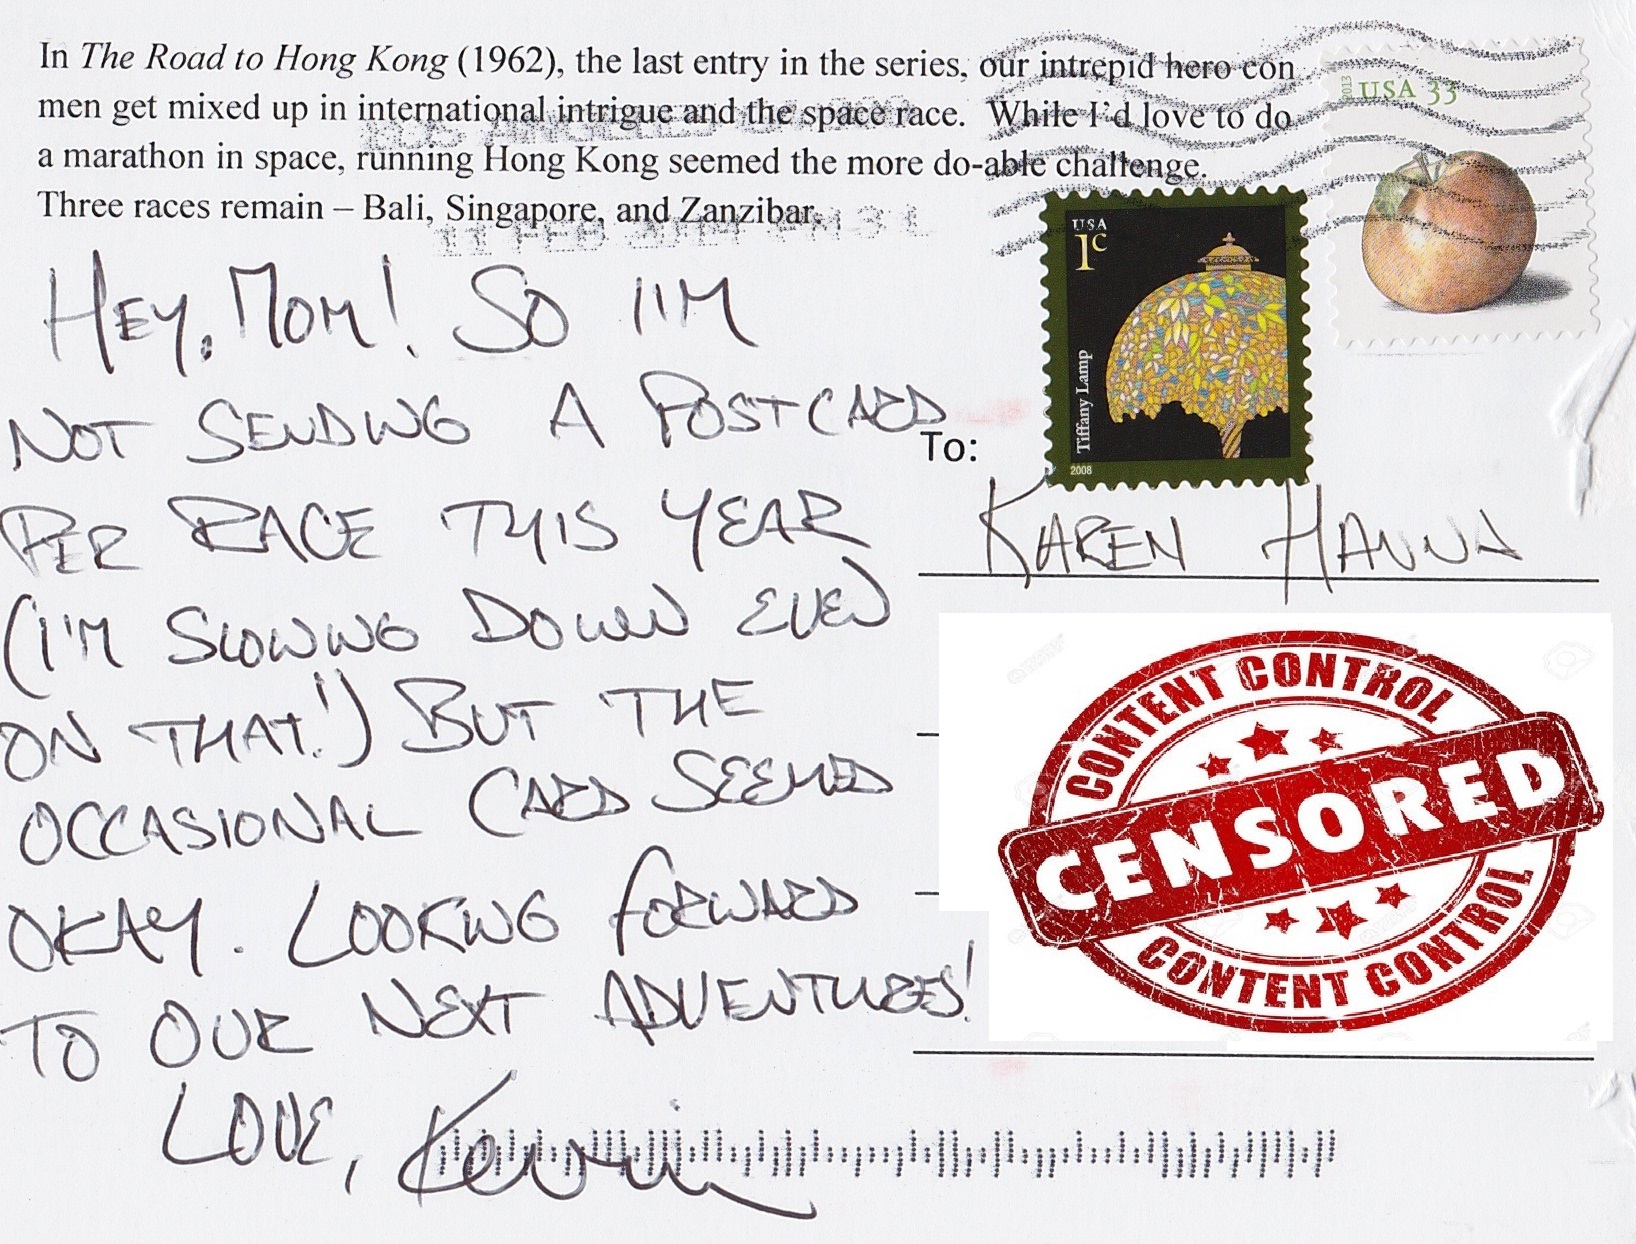 In The Road to Hong Kong (1962), the last entry in the series, our intrepid hero con
men get mixed up in international intrigue and the space race.  While I'd love to do
a marathon in space, running Hong Kong seemed the more do-able challenge.
Three races remain – Bali, Singapore, and Zanzibar.
2013 USA 33
USA
1c
Tiffany Lamp
2008
HEY, MOM! SO I'M
NOT SENDING A POSTCARD
PER RACE THIS YEAR
(I'M SLOWING DOWN EVEN
ON THAT!) BUT THE
OCCASIONAL CARD SEEMED
OKAY. LOOKING FORWARD
TO OUR NEXT ADVENTURES!
LOVE, Kevin
To:
KAREN HANNA
CONTENT CONTROL
CENSORED
CONTENT CONTROL